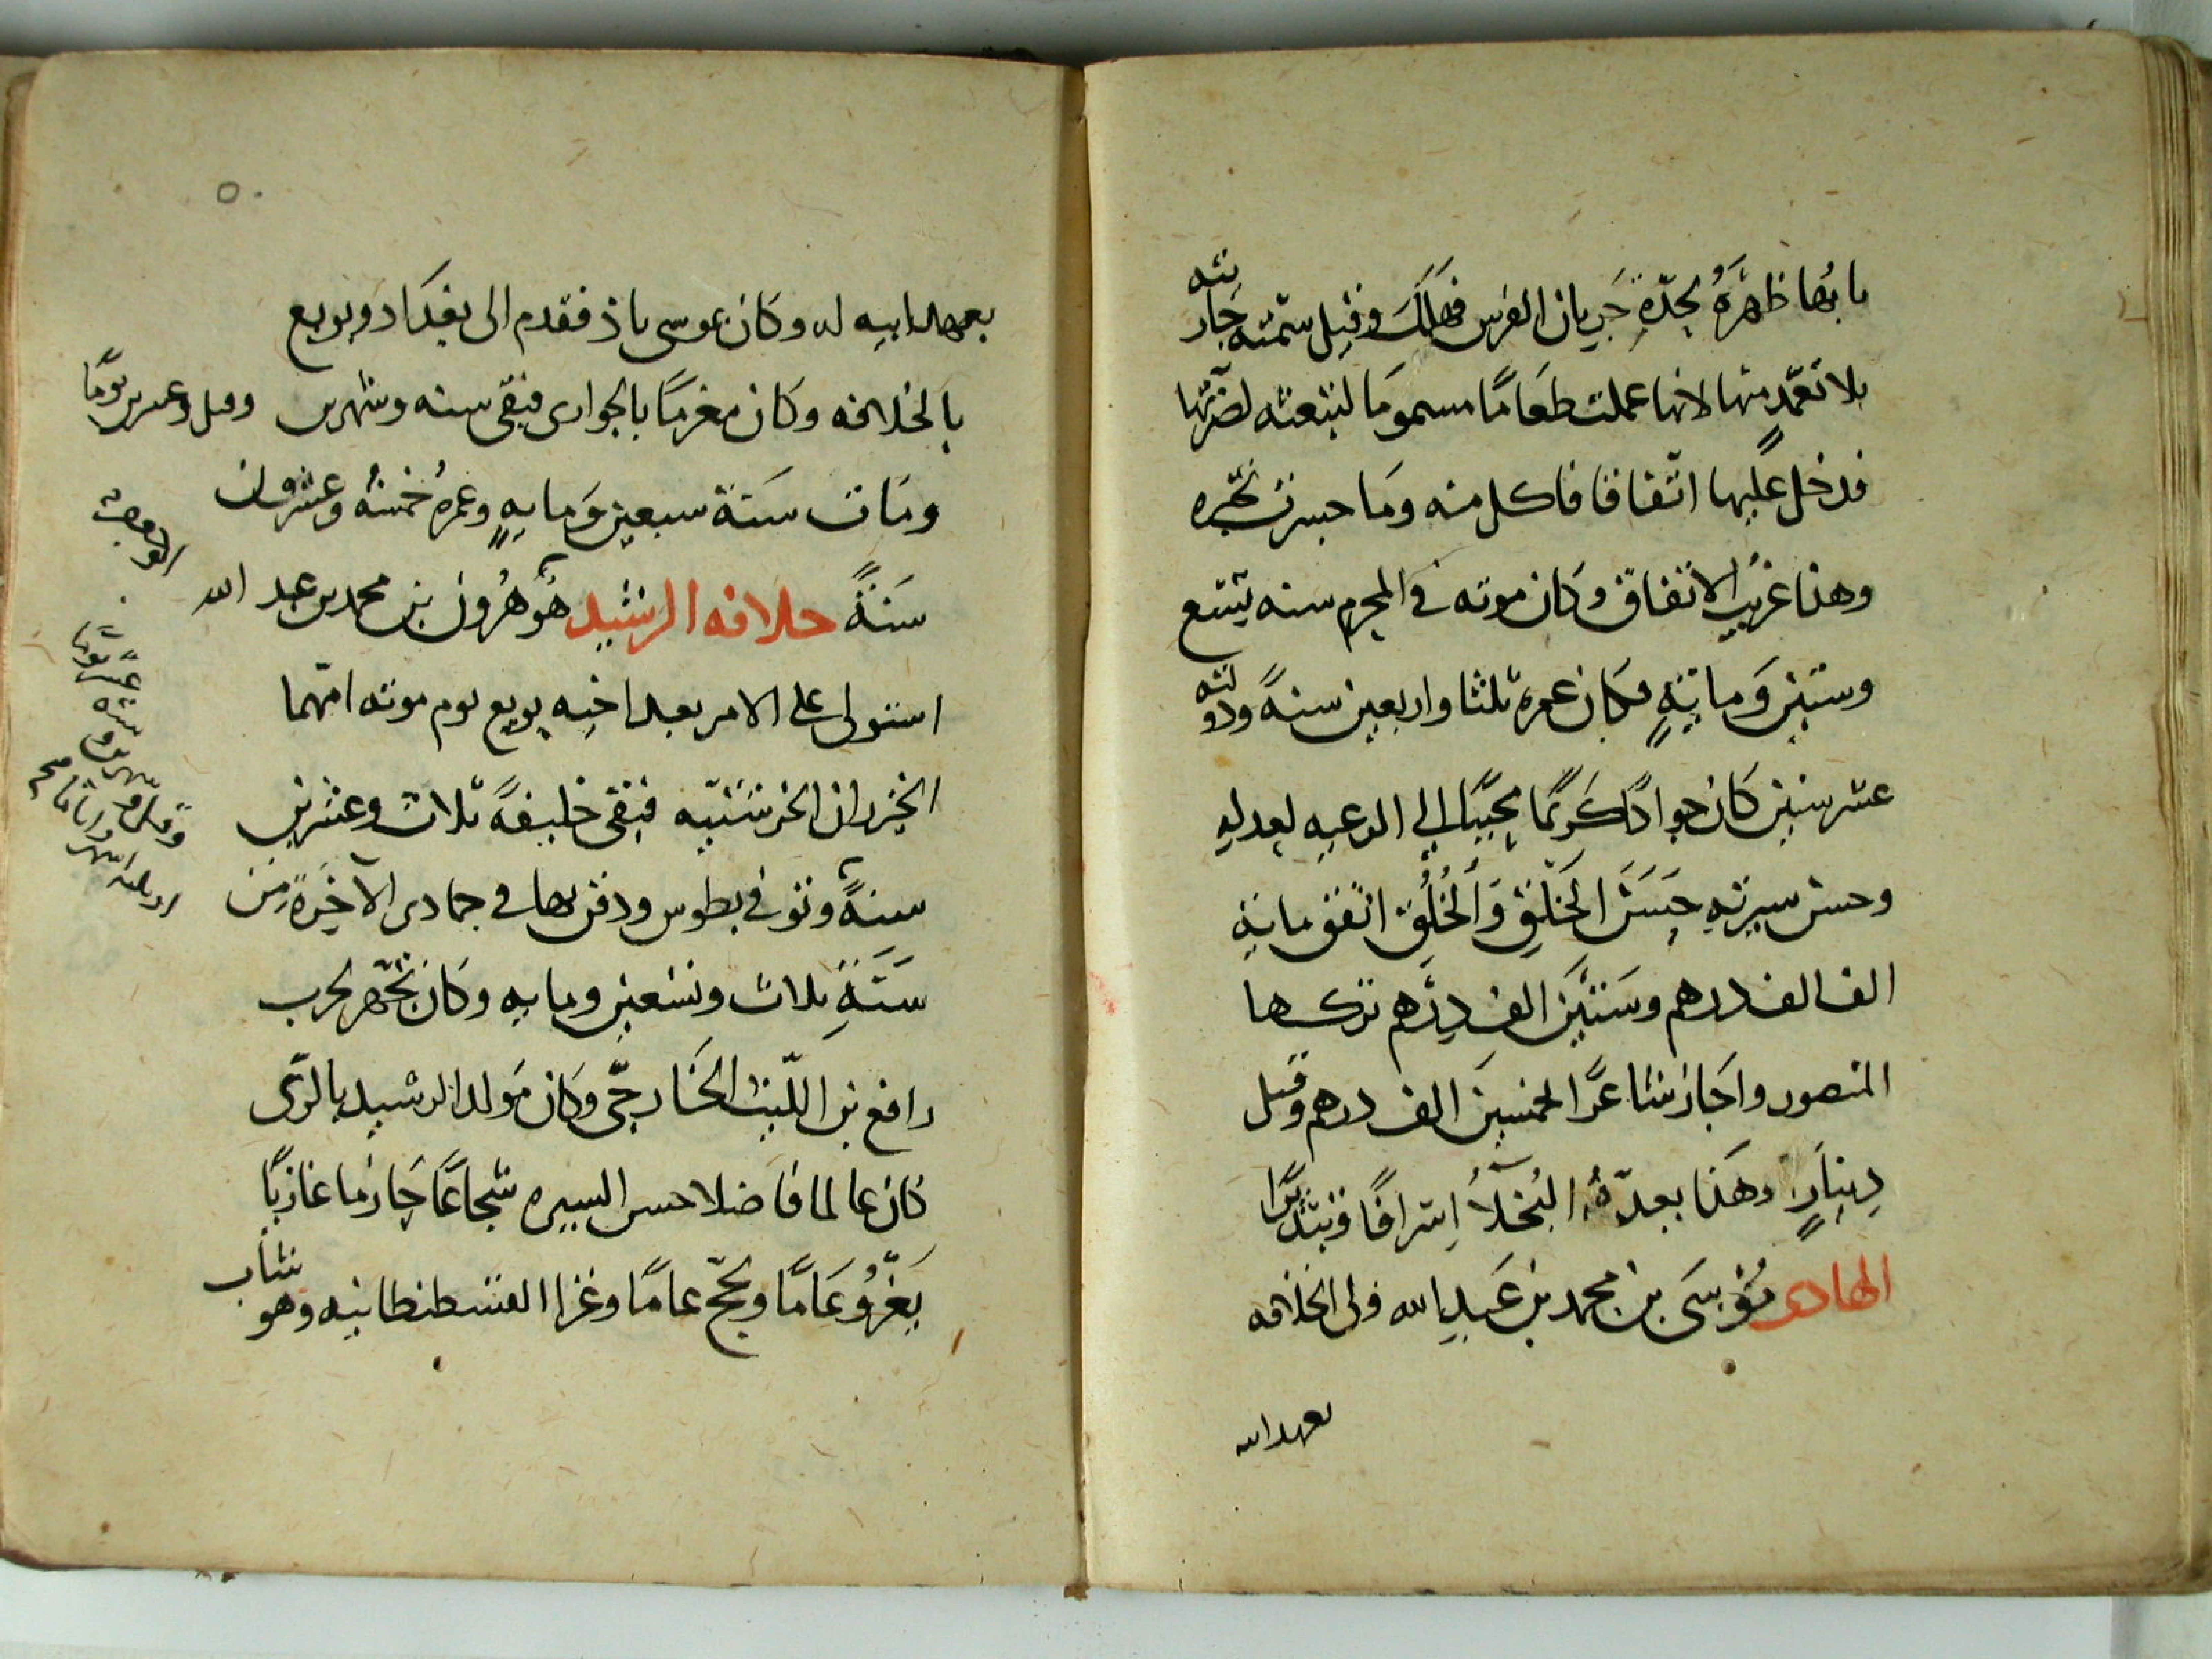 بابها ظهره لحدّة جريان الفرس فهلك وقيل سمته جاريته
بلا تعمّد منها لانها عملت طعامًا مسمومًا لتبعثه لضرتها
فدخل عليها اتفاقا فاكل منه وما جسرت تخبره
وهذا غريب الاتفاق وكان موته في المحرم سنه تسع
وستين ومايةٍ فكان عمره ثلثا واربعين سنةً ودولته
عشر سنين كان جوادًا كريمًا محببًا الى الرعيه لعدله
وحسن سيرته حسن الخَلْق والخُلُق انفق ماية
الف الف درهم وستين الف درهم تركها
المنصور واجاز شاعرًا لخمسين الف درهم وقيل
دينارٍ وهذا بعدّهُ البُخَلآءُ اسرافًا وتبذيرًا
الهادى موسى بن محمد بن عبد الله ولى الخلافه
بعهد ابيه
٥٠
بعهد ابيه له وكان موسى باذ فقدم الى بغداد وبويع
بالخلافه وكان مغرمًا بالجوارى فبقى سنه وشهرين وقيل وعشرين يومًا
ومات سنة سبعين ومايةٍ وعمره خمسة وعشرون
سنةً خلافه الرشيد هو هرون بن محمد بن عبد الله
استولى على الامر بعد اخيه بويع يوم موته امهما
الخيزران الخرشنيه فبقى خليفةً ثلاث وعشرين
سنةً وتوفى بطوس ودفن بها فى جمادى الآخرة من
سنة ثلاث وتسعين ومايه وكان تجهز لحرب
رافع بن الليث الخارجىّ وكان مولد الرشيد بالرّى
كان عالما فاضلا حسن السيره شجاعًا حازما غازيًا
يغزُو عامًا ويحجّ عامًا وغزا القسطنطانيه وهو شاب